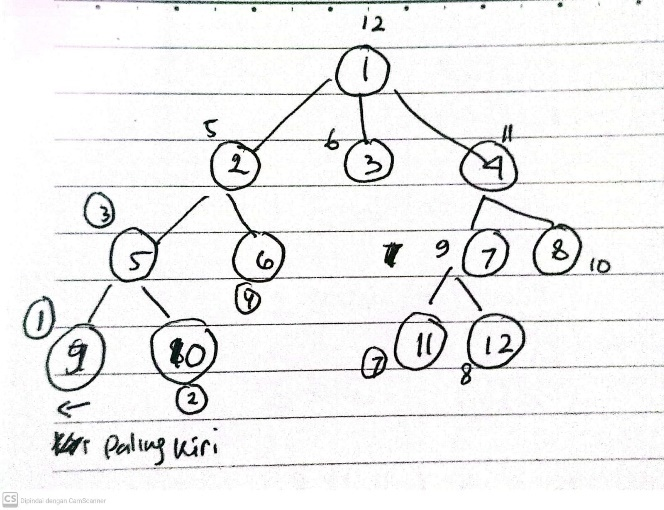 12
1
5
6
11
2
3
4
3
5
6
9
7
8
10
4
1
9
10
11
12
7
8
2
Paling Kiri
CS Dipindai dengan CamScanner